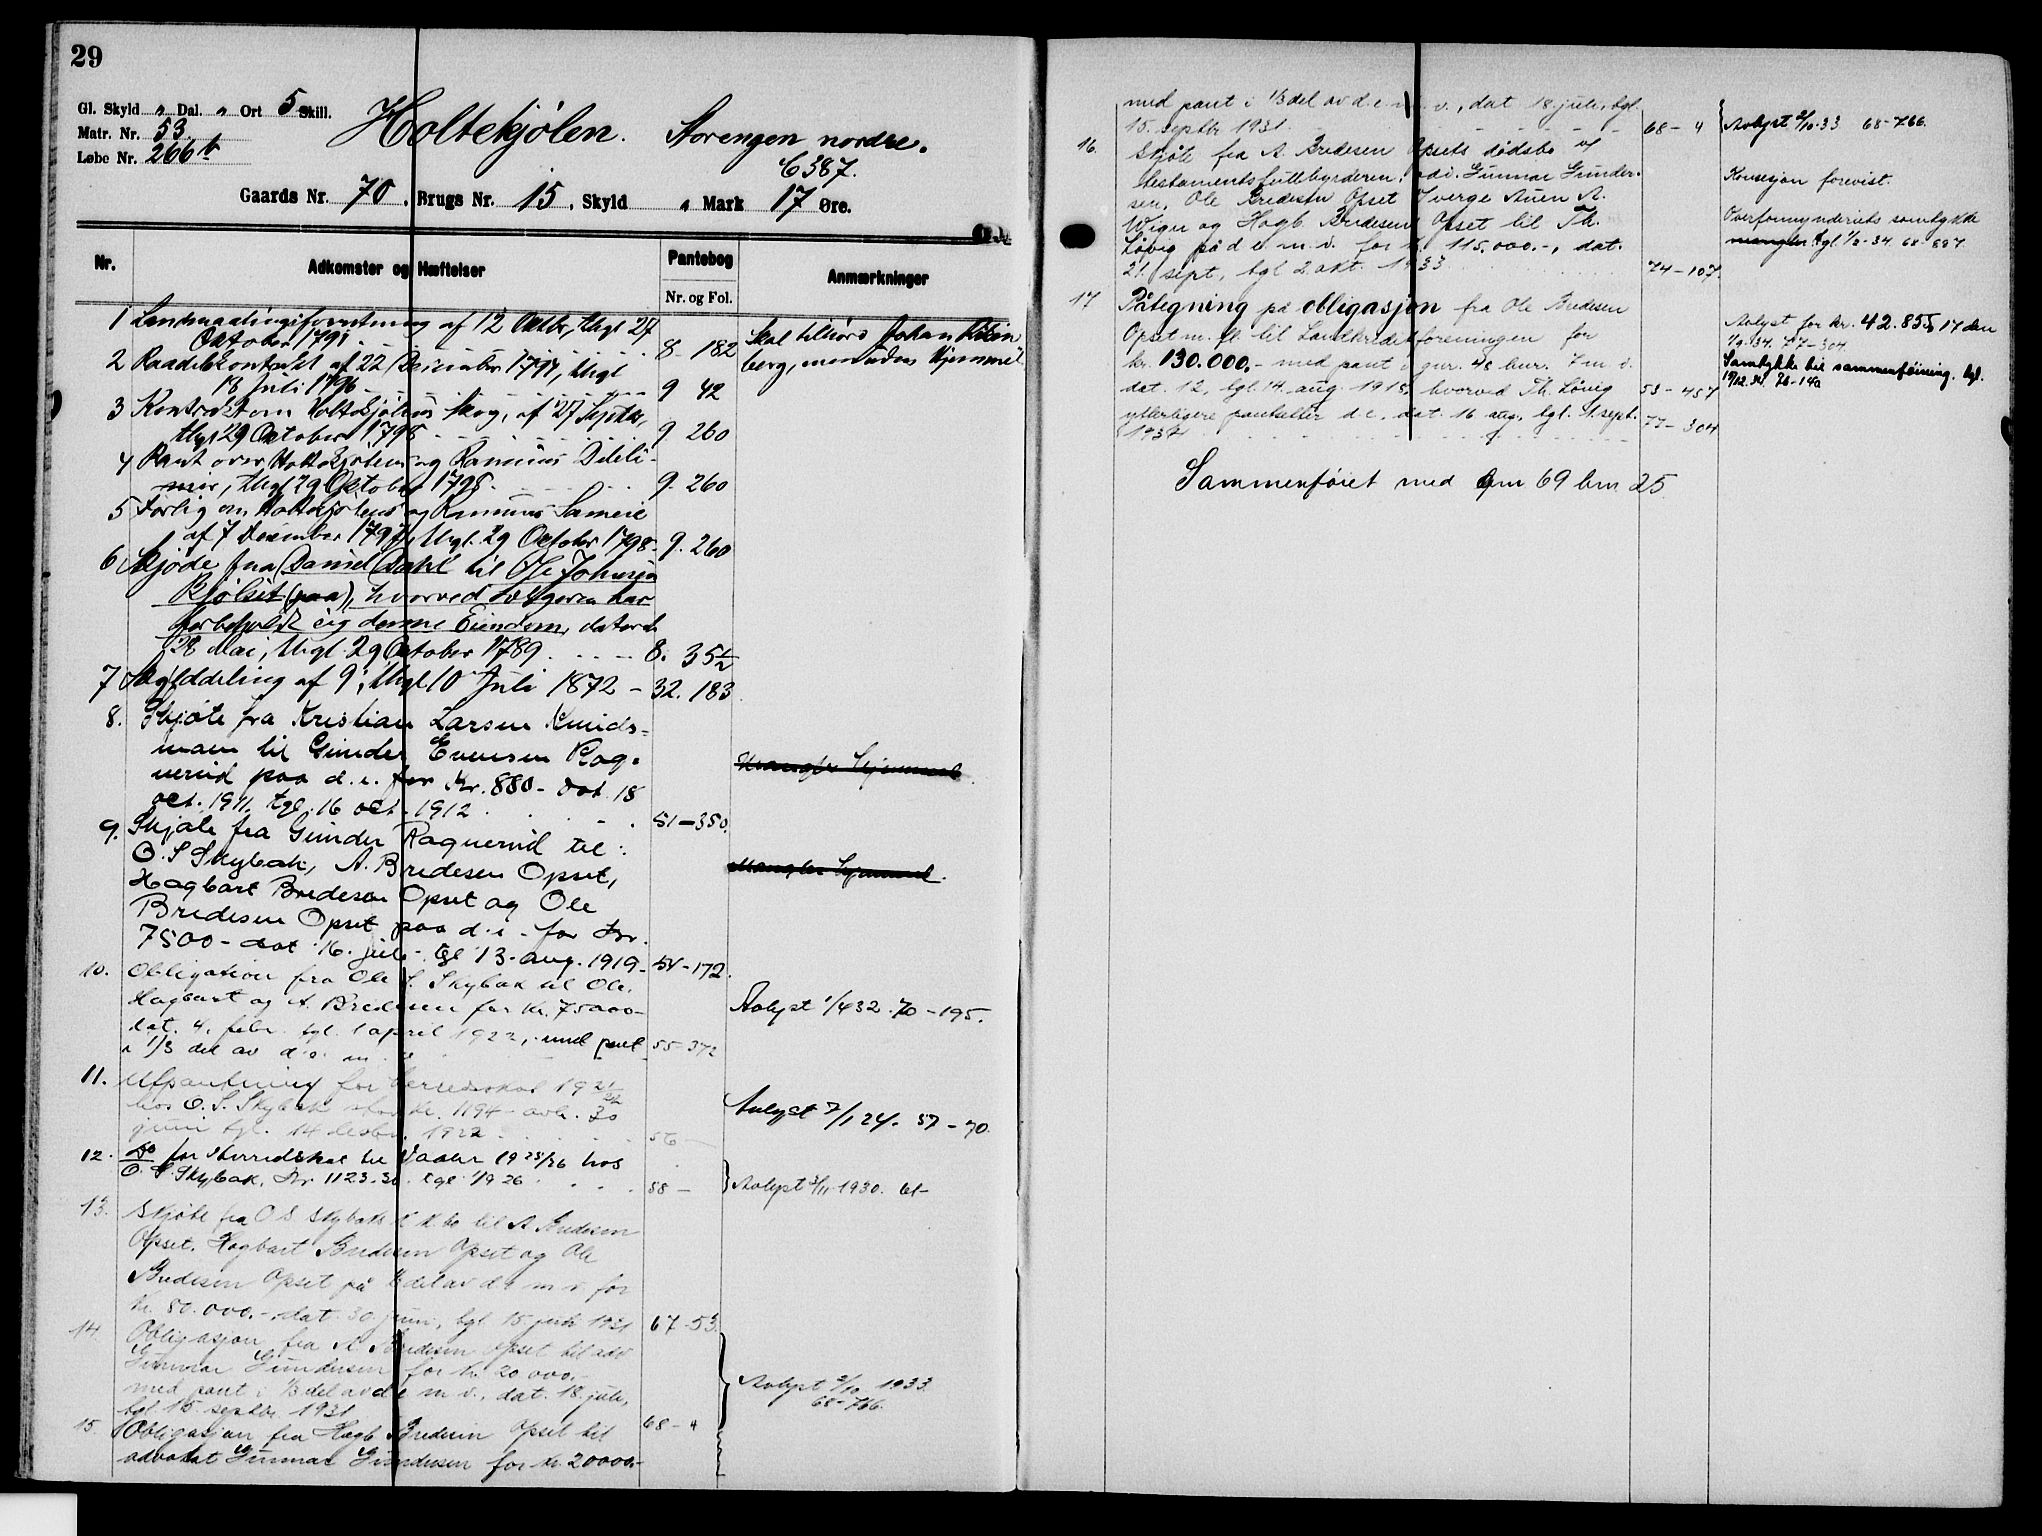 29
Gl. Skyld „ Dal. „ Ort 5 Skill.
Matr. Nr. 53.
Løbe Nr. 266 b
Holtekjølen. Storengen nordre.
C 387.
Gaards Nr. 70, Brugs Nr. 15, Skyld „ Mark 17 Øre.
Nr. Adkomster og Hæftelser Pantebog Anmærkninger
Nr. og Fol.
1 af 12 Oktbr, thgl 27
Oktober 1791 8 - 182
Skal tilhøre Johan
berg, men uden Hjemmel
2 Raadekontrakt af 22 December 1794, thgl
18 Juli 1796 9 42
3 Kontrakt om Holtekjølens Skog, af 27 Septbr,
thgl 29 Oktober 1798 9 260
4 Pant over Holtekjølens og
thgl 29 Oktober 1798 9 - 260
5 Forlig om Holtekjølens og Sameie
af 7 December 1797, thgl. 29 October 1798 - 9. 260
6 Skjøde fra Daniel Dahl til Ole Johnsen
Kjølset (paa), hvorved Sælgeren har
forbeholdt sig denne Eiendom, dateret
28 Mai, thgl 29 Oktober 1789 8. 35 1/2
7 Skylddeling af 9, thgl 10 Juli 1872 - 32. 183
8. Skjøte fra Kristian Larsen Knuds-
til Gunder Evensen Rog-
nerud paa d. e. for Kr. 880 - dat. 18
oct. 1911. tgl. 16 oct. 1912 51 - 350.
Mangler Hjemmel.
9. Skjøte fra Gunder Rognerud til:
O. S Skybak, A. Bredesen Opset,
Hagbart Bredesen Opset og Ole
Bredesen Opset paa d. e. for Kr.
7500 - dat 16. juli - tgl 13. aug. 1919 - 54 - 172.
Mangler Hjemmel.
10. Obligation fra Ole S. Skybak til Ole,
Hagbart og A Bredesen for Kr. 75000 -
dat. 4. febr. tgl. 1 april 1922, med pant
i 1/3 del av d. e. m. v. 55 - 372
Avlyst 1/4 32. 70 - 195.
11. Utpantning for herredsskat 1921/22
hos O. S. Skybak for Kr. 1194 - avh. 30
juni tgl. 14 desbr. 1922 56 -
Avlyst 7/1 24. 57 - 70.
12. Do for Herredskat til Vaaler 1925/26 hos
O. S. Skybak, Kr 1123.30. tgl. 1/9 26 58 -
Avlyst 3/11 - 1930. 61 -
13. Skjøte fra O S. Skybaks k. k. bo til A Bredesen
Opset, Hagbart Bredesen Opset og Ole
Bredesen Opset på 1/3 del av d. e m v. for
kr. 80.000. -, dat. 30 juni, tgl. 15 1931 67 - 53.
14. Obligasjon fra A. Bredesen Opset til adv
Gunnar Gundersen for kr. 20 000. -
med pant i 1/3 del av d e m v., dat. 18. juli,
tgl. 15. septbr. 1931 68 - 4
Avlyst 2/10 1933.
68 - 766.
15. Obligasjon fra Hagb. Bredesen Opset til
advokat Gunnar Gundersen for kr. 20000. -
med pant i 1/3 del av d. e. m. v., dat. 18. juli, tgl.
15. septbr 1931. 68 - 4
Avlyst 2/10 - 33 68 - 766.
16. Skjøte fra A. Bredesen Opsets dødsbo v/
testamentsfuldbyrderen, adv. Gunnar Gunder-
sen, Ole Bredesen Opset v/verge Auen A.
Wiger og Hagb. Bredesen Opset til Th.
Løvig på d e m v. for kr. 115.000. -, dat.
21. sept, tgl. 2 okt. 1933 74 - 107.
Konsesjon forevist.
Overformynderiets samtykke
mangler tgl 1/2 - 34. 68 - 887.
17 Påtegning på obligasjon fra Ole Bredesen
Opset m. fl. til Landkreditforeningen for
kr. 130.000. - med pant i gnr. 48 bnr. 7 m v.
dat. 12, tgl. 14. aug. 1918, hvorved Th. Løvig
53 - 457
ytterligere pantsetter d. e., dat. 16 aug. tgl. 1. sept.
1934 77 - 304
Avlyst for kr. 42.855, 17 den
1/9. 34. 77 - 304.
Samtykke til sammenføining. tgl.
19/12. 34. 78 - 140
Sammenføiet med gnr 69 bnr 25.